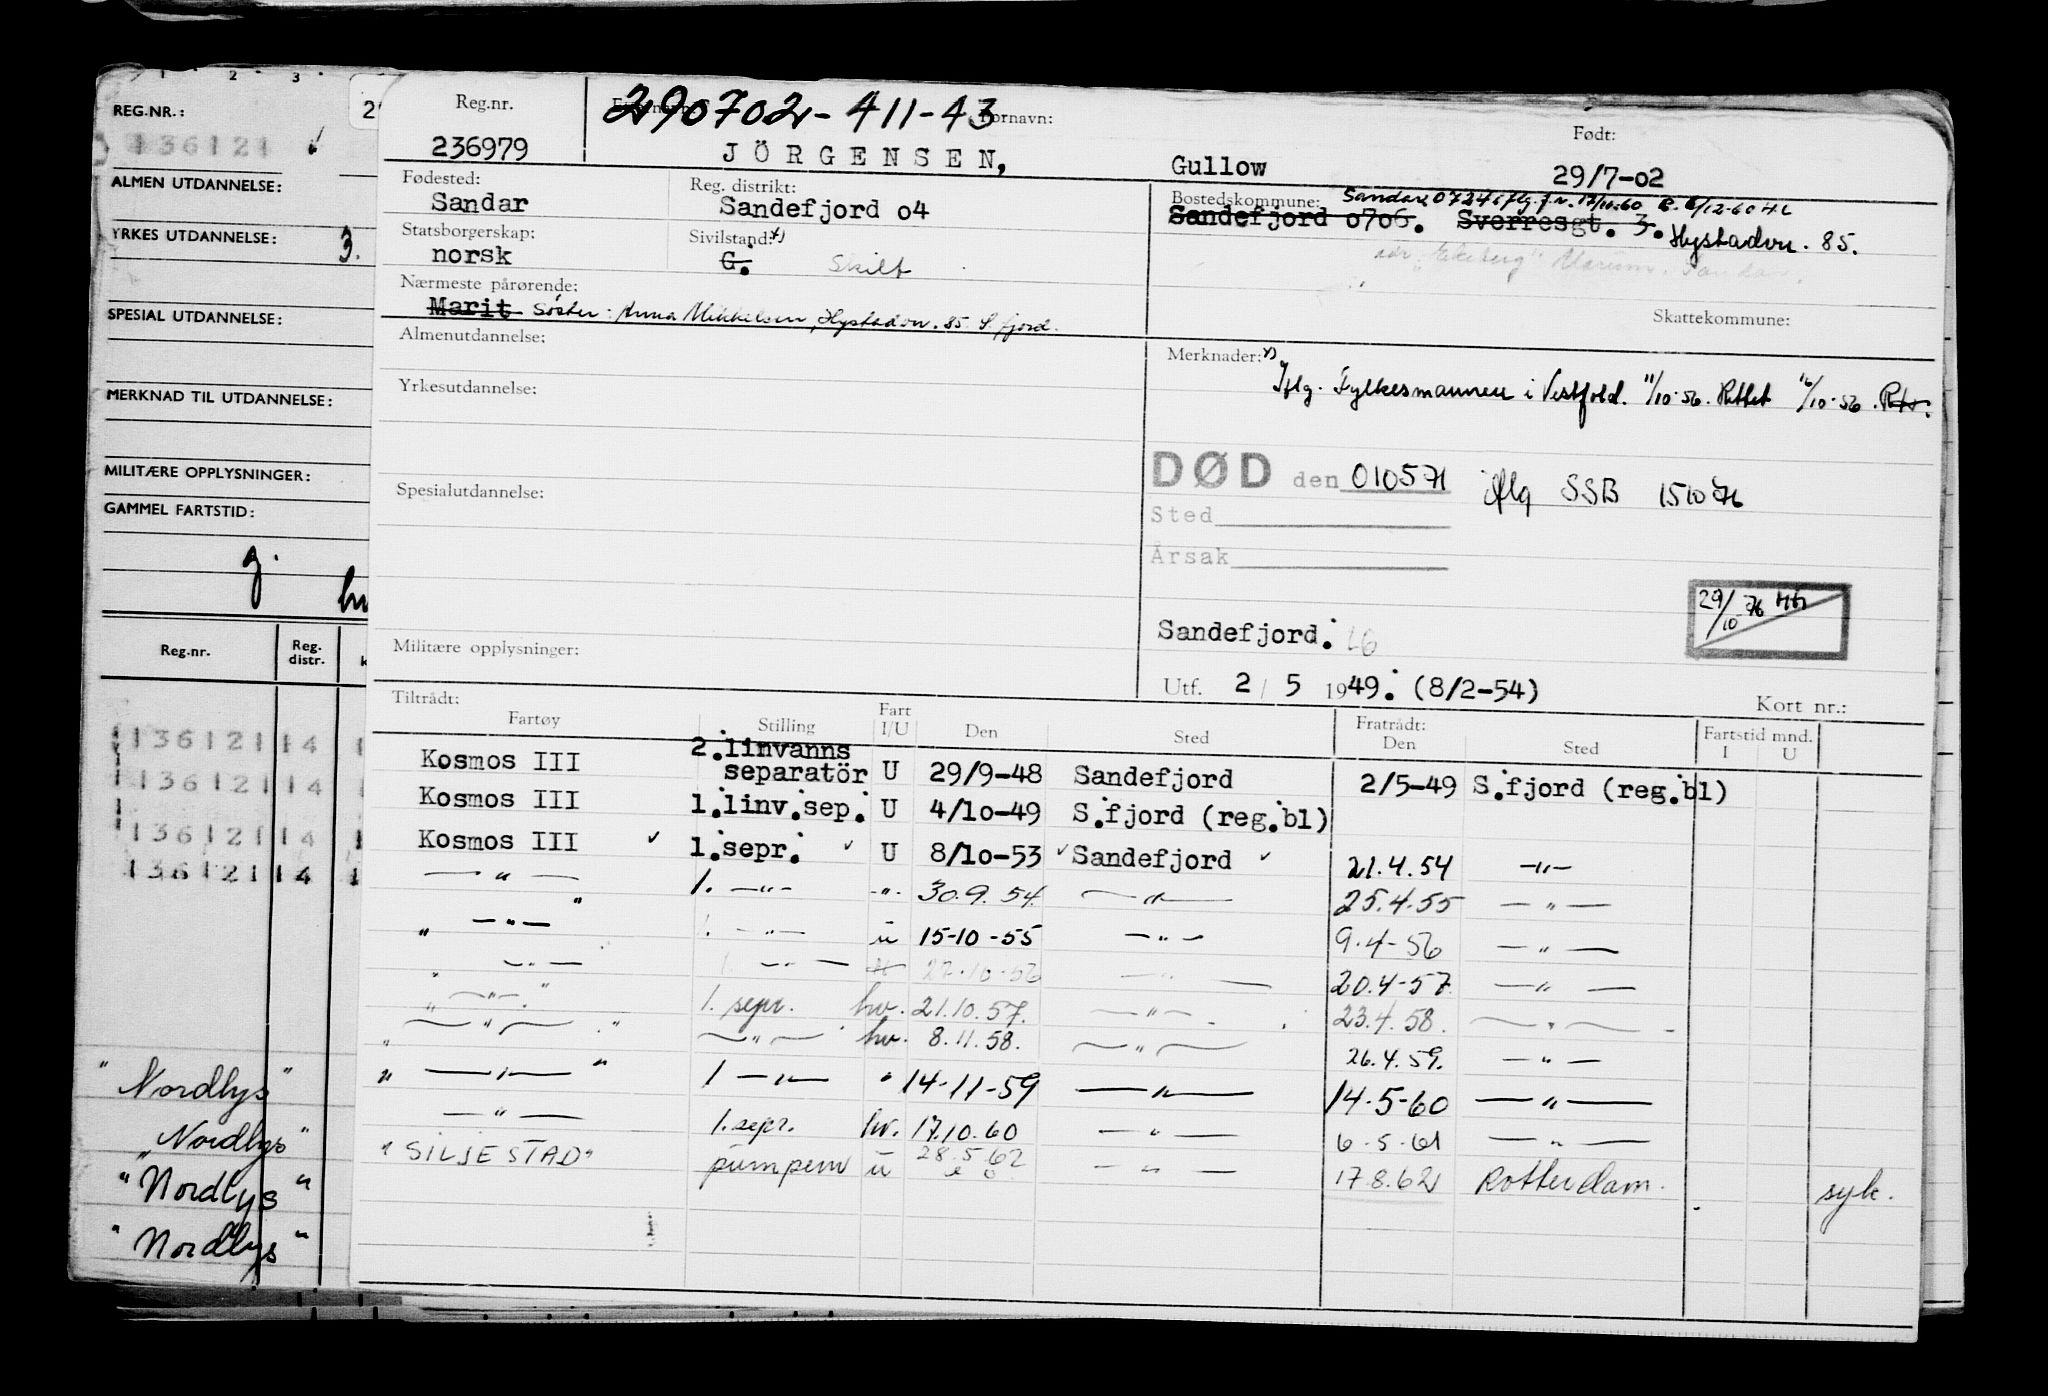 1 2 3
REG.NR.:
136121
ALMEN UTDANNELSE:
YRKES UTDANNELSE: 3.
SPESIAL UTDANNELSE:
MERKNAD TIL UTDANNELSE:
MILITÆRE OPPLYSNINGER:
GAMMEL FARTSTID:
Reg.nr. Reg. distr.
136121 14
136121 14
136121 14
136121 14
"Nordlys"
"Nordlys"
"Nordlys"
"Nordlys"
Reg.nr. 290702-411-43 Fornavn: Født:
236979 JÖRGENSEN, Gullow 29/7-02
Fødested: Reg. distrikt: Bostedskommune: Sandar 0724
Sandar Sandefjord o4 Sandefjord o7o6. Sverresgt. 3. Hystadvn. 85.
Statsborgerskap: Sivilstand: x)
norsk G. Skilt
Nærmeste pårørende:
Marit Söster: Anna Mikkelsen, Hystadvn. 85 S.fjord.
Skattekommune:
Almenutdannelse:
Merknader: x)
Iflg. Fylkesmannen i Vestfold. 11/10-56. Rettet 16/10-56.
Yrkesutdannelse:
DØD den 010571 iflg SSB 151076
Spesialutdannelse:
Sted
Årsak
29/10 76
Sandefjord.
Militære opplysninger:
Utf. 2 / 5 1949. (8/2-54)
Kort nr.:
Tiltrådt: Fratrådt:
Fartøy Stilling Fart I/U Den Sted Den Sted Fartstid mnd. I U
Kosmos III 2.linvanns separatör U 29/9-48 Sandefjord 2/5-49 S.fjord (reg.bl)
Kosmos III 1.linv.sep. U 4/10-49 S.fjord (reg.bl)
Kosmos III ✓ 1.sepr. ✓ U 8/10-53 ✓ Sandefjord ✓ 21.4.54 —"—
—"— 1. —"— -"- 30.9.54. —"— 25.4.55 —"—
" —"— " 1. —"— u 15-10-55 —"— 9.4-56 —"—
" —"— 1 —"— 22.10.56 —"— 20.4-57 —"—
" —"— " 1. sepr. hv. 21.10.57. —"— 23.4.58. —"—
" —"— " —"— hv. 8.11.58. —"— 26.4.59. —"—
" —"— " 1 —"— " 14-11-59 —"— 14.5-60 —"—
—"— 1.sepr. hv. 17.10.60 —"— 6.5.61 —"—
"SILJESTAD" pumpem u 28.5.62 —"— 17.8.62 Rotterdam. syk.